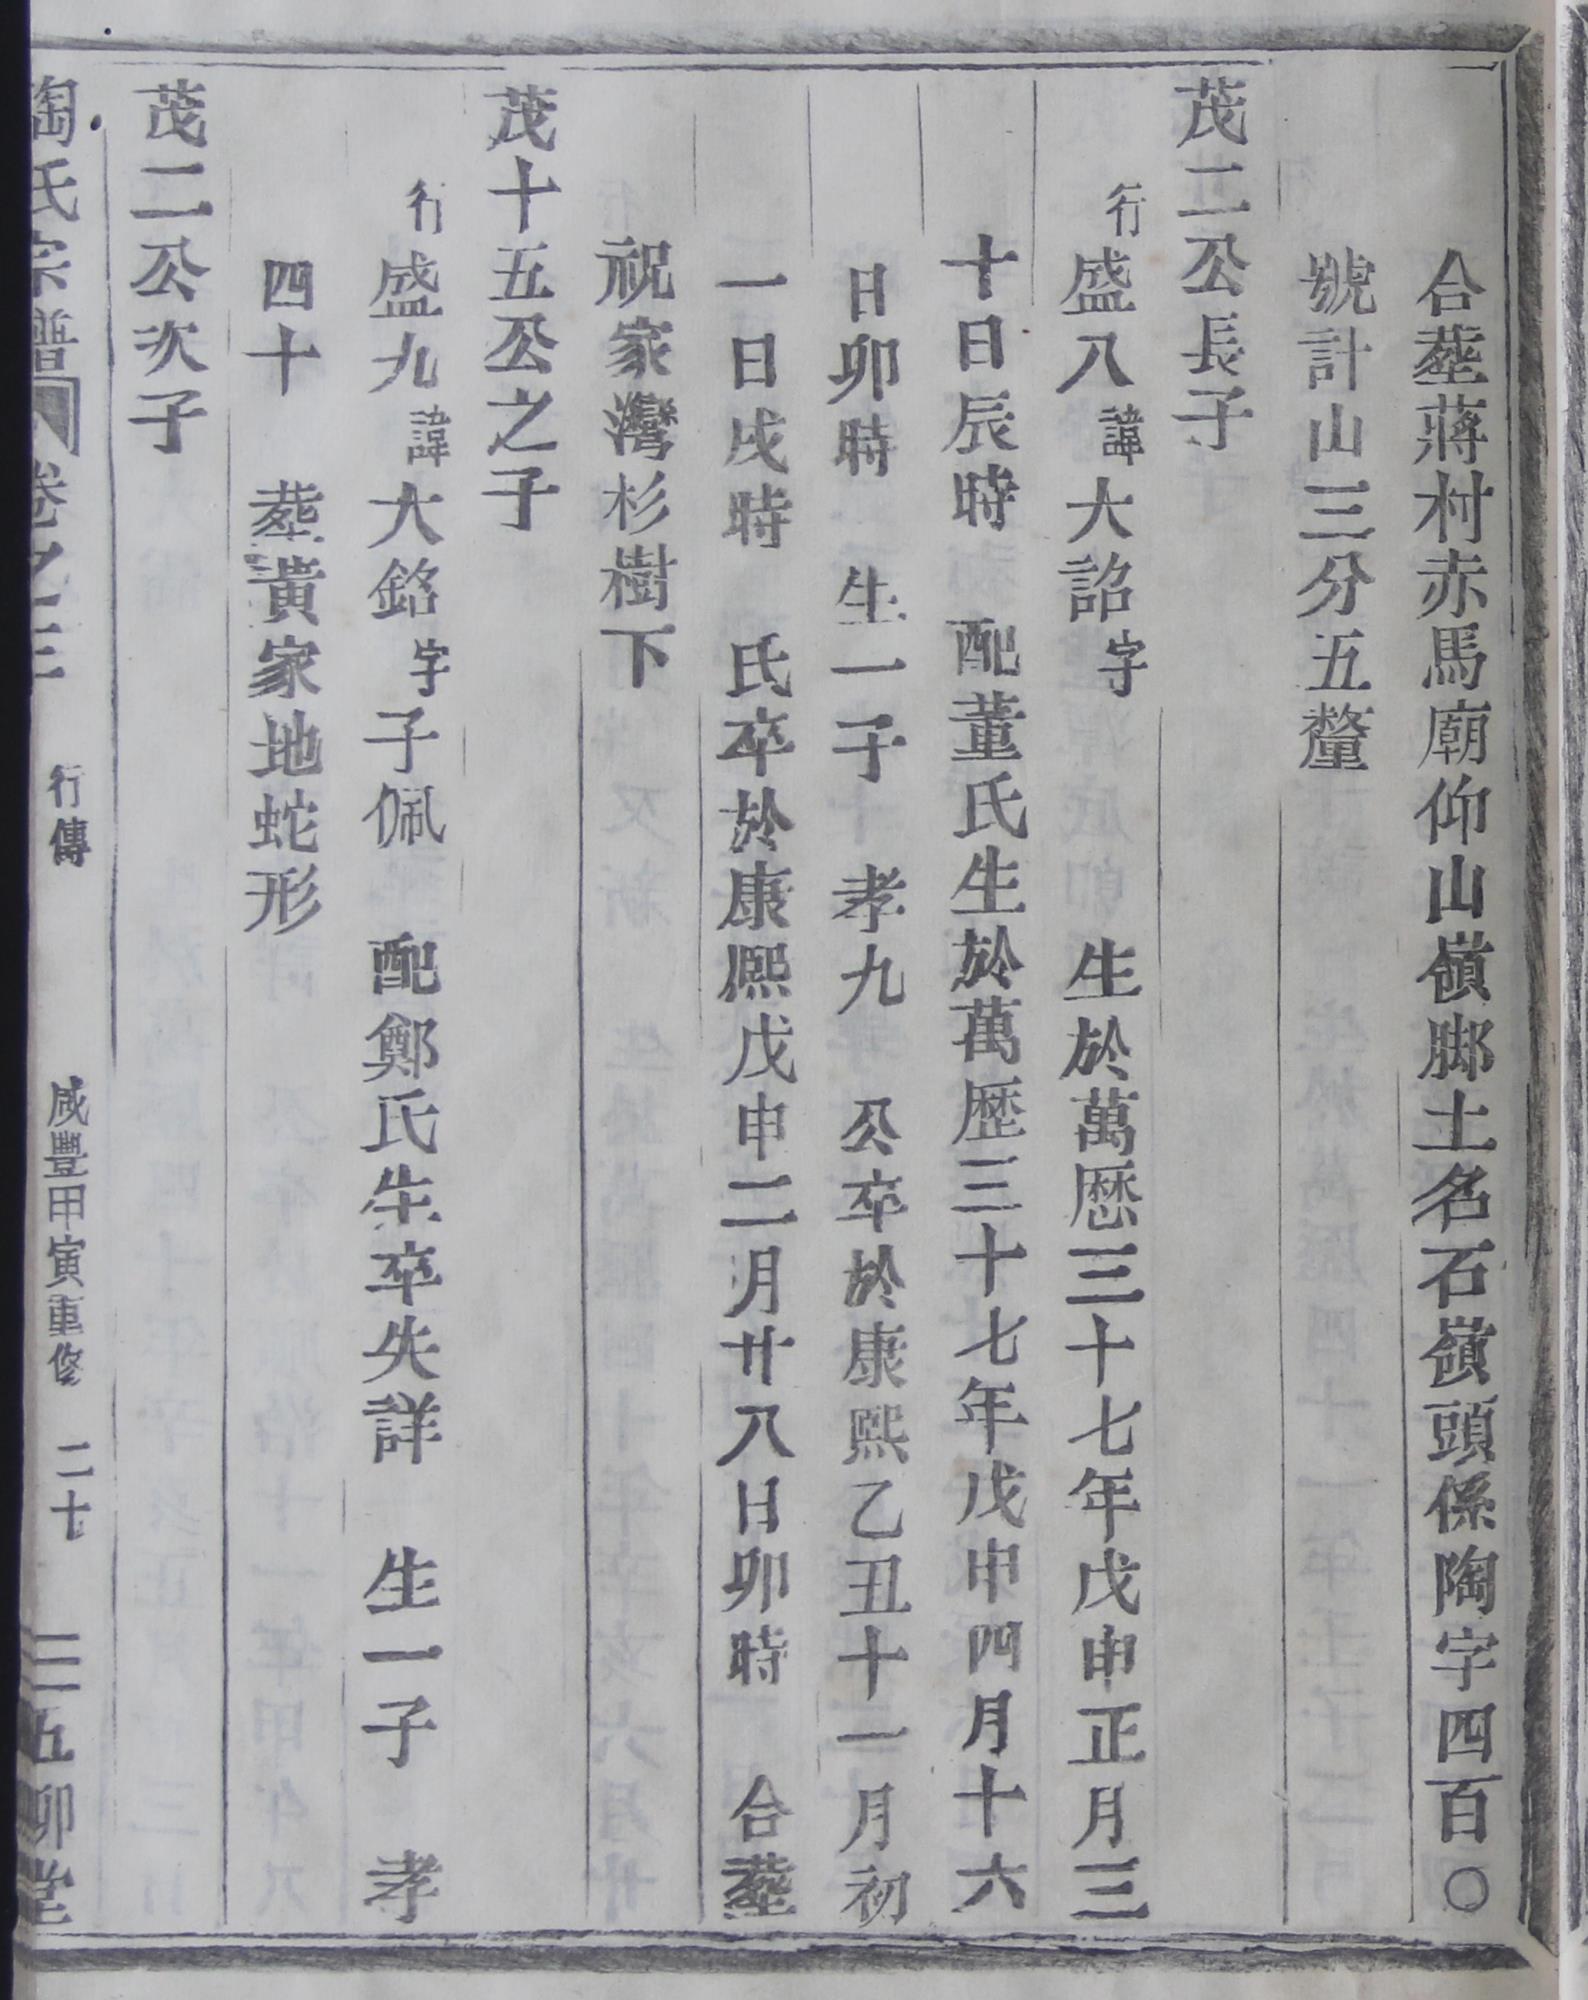 合塟蔣村赤馬廟仰山嶺脚土名石嶺頭係陶字四百〇
號計山三分五釐
茂二公長子
行盛八諱大詔字 生於萬歷三十七年戊申正月三
十日辰時 配董氏生於萬歷三十七年戊申四月十六
日卯時 生一子 孝九 公卒於康熙乙丑十一月初
一日戌時 氏卒於康熙戊申二月廿八日卯時 合塟
祝家灣杉樹下
茂十五公之子
行盛九諱大銘字子佩 配鄭氏生卒失詳 生一子 孝
四十 塟黃家地蛇形
茂二公次子
陶氏宗譜 卷之三 行傳 咸豐甲寅重修 二十 五柳堂